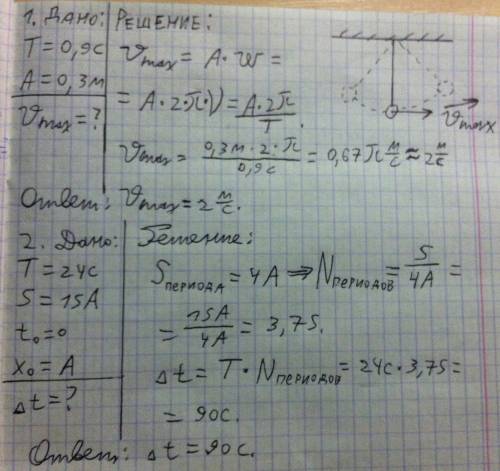 1. Дано:
T = 0,9с
A = 0,3м
V max = ?
Решение:
V max = A · w =
= A · 2 · π · ν = A · 2π / T.
V max = 0,3м · 2 · π / 0,9с = 0,67π м/с ≈ 2 м/с
V max
Ответ: V max = 2 м/с.
2. Дано:
T = 24с
S = 15A
t₀ = 0
x₀ = A
Δt = ?
Решение:
S периода = 4A ⇒ N периодов = S / 4A =
= 15A / 4A = 3,75.
Δt = T · N периодов = 24с · 3,75 =
= 90с.
Ответ: Δt = 90с.